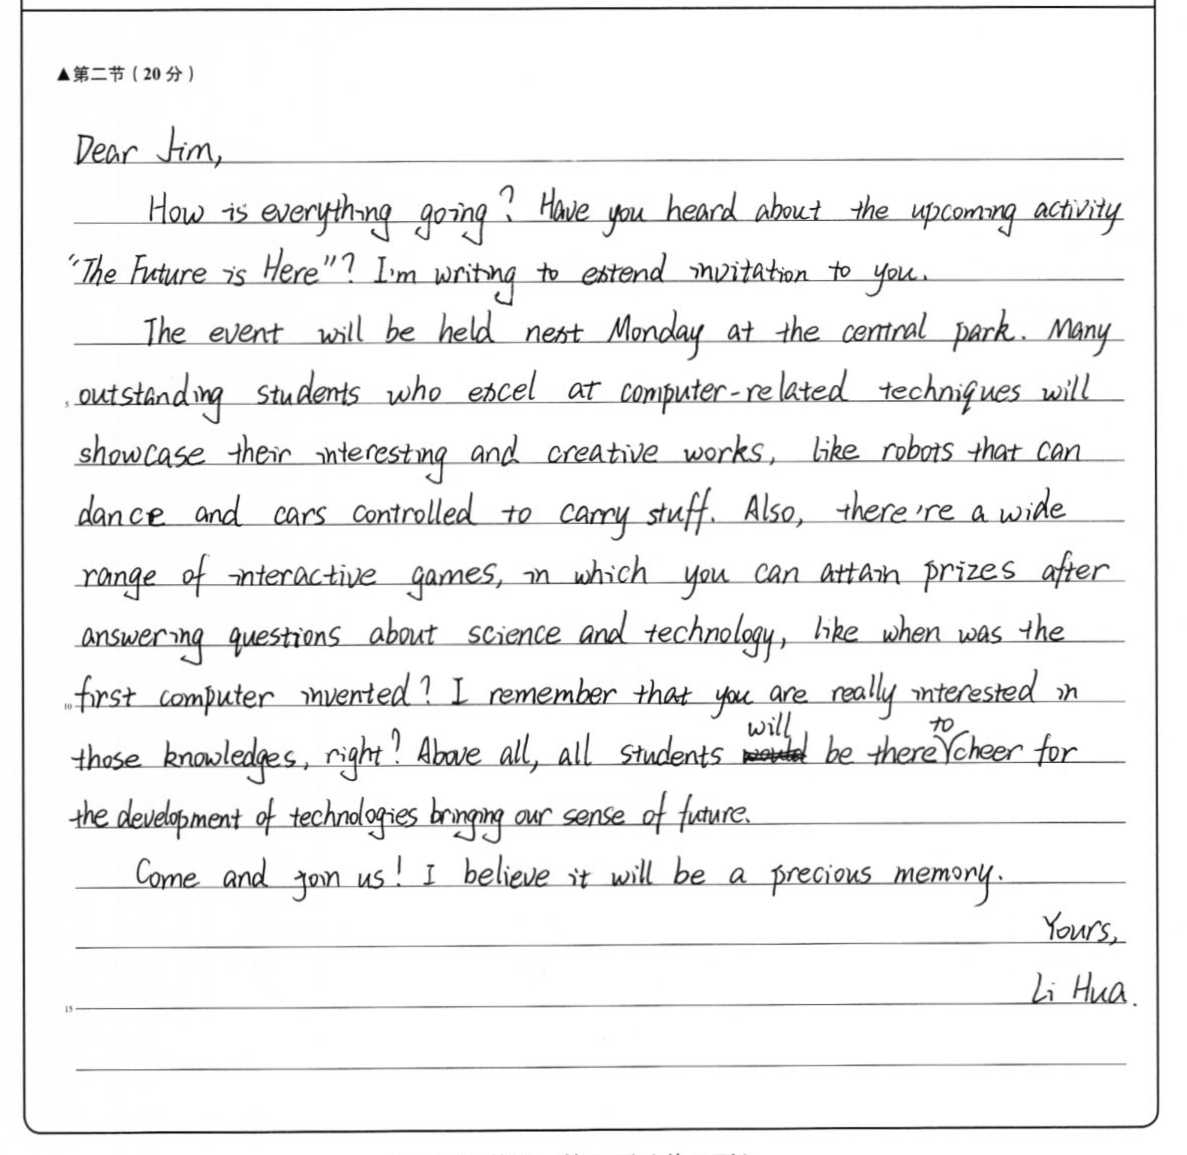 ▲第二节（20 分）
Dear Jim,
How is everything going? Have you heard about the upcoming activity
"The Future is Here"? I'm writing to extend invitation to you.
The event will be held next Monday at the central park. Many
5 outstanding students who excel at computer-related techniques will
showcase their interesting and creative works, like robots that can
dance and cars controlled to carry stuff. Also, there're a wide
range of interactive games, in which you can attain prizes after
answering questions about science and technology, like when was the
10 first computer invented? I remember that you are really interested in
those knowledges, right? Above all, all students will be there to cheer for
the development of technologies bringing our sense of future.
Come and join us! I believe it will be a precious memory.
Yours,
15 Li Hua.